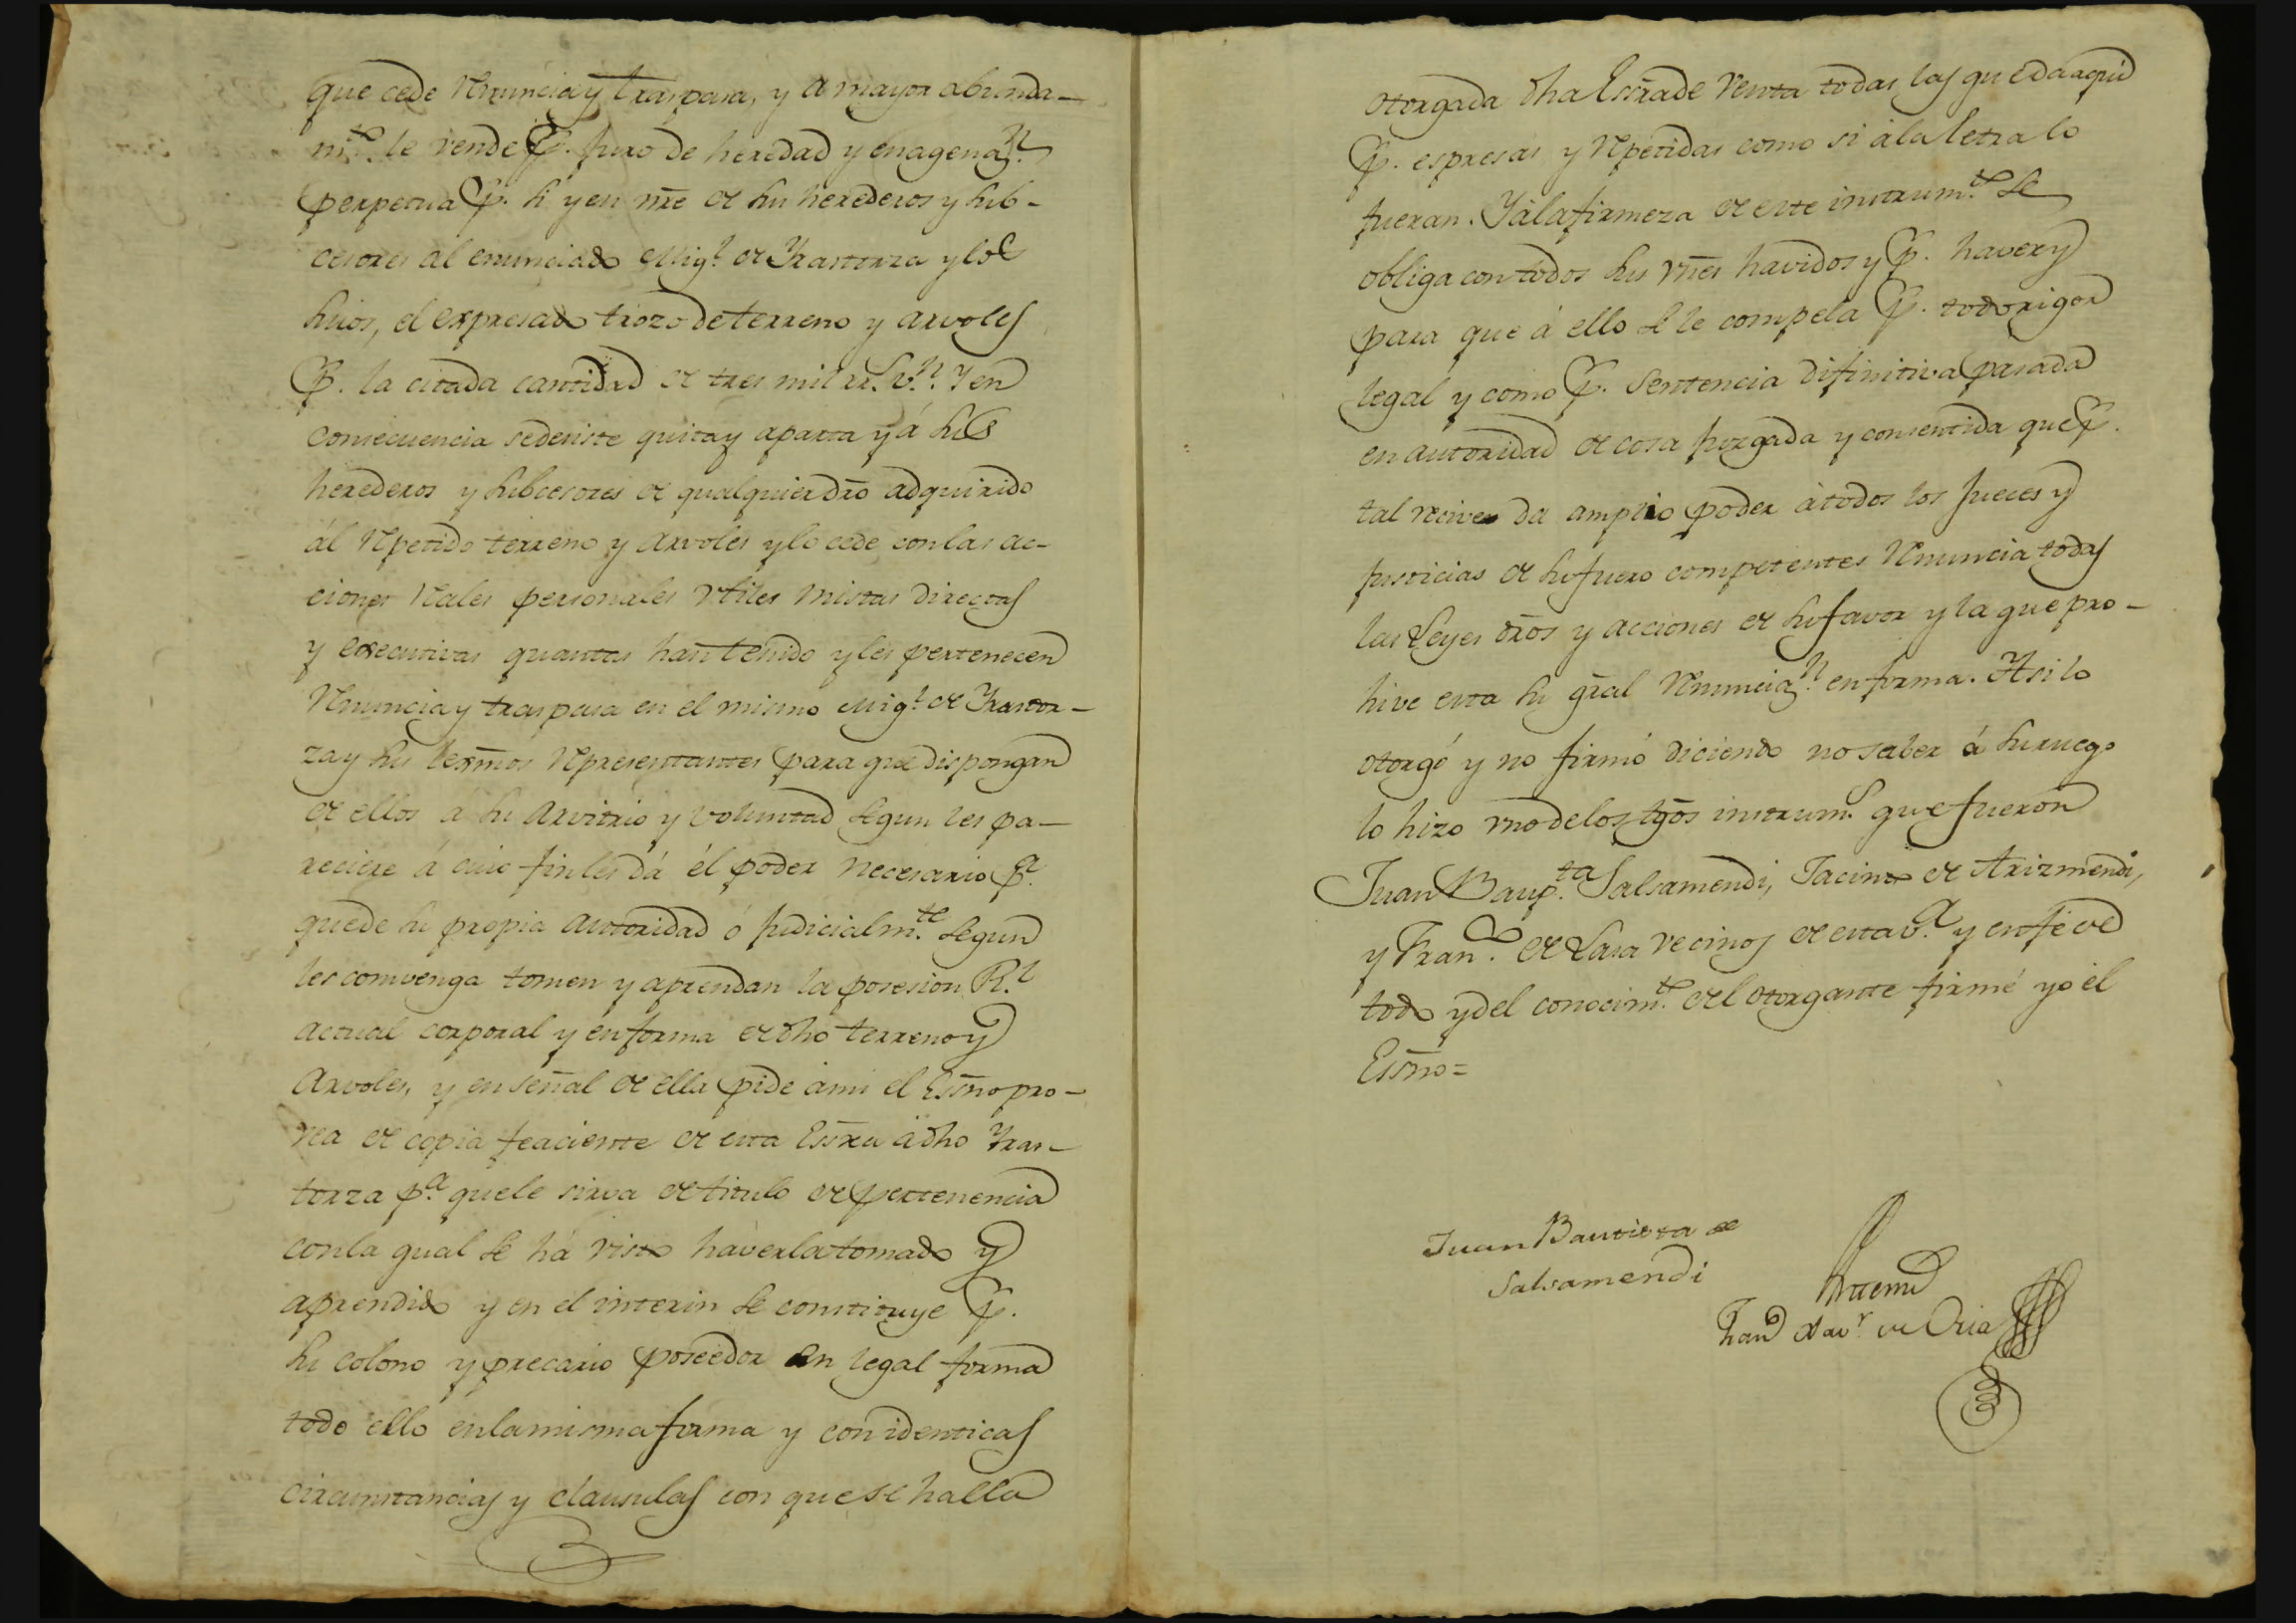 que cede renuncia y traspasa, y a mayor abunda-
m.to le vende p. juro de heredad y enagenaz.n
perpetua p. si y en nre de sus herederos y sub-
cesores al enunciado Mig.l de Yrastorza y los
suios, el expresado trozo de terreno y arvoles
p. la citada cantidad de tres mil rr.s v.n Y en
consecuencia se desiste quita y aparta y á sus
herederos y subcesores de qualquier dro adquirido
ál repetido terreno y arvoles y lo cede con las ac-
ciones reales personales utiles mistas directas
y executivas quantas han tenido y les pertenecen
renuncia y traspasa en el mismo Mig.l de Yrastor-
za y sus lexmos representantes para que dispongan
de ellos á su arvitrio y voluntad segun les pa-
reciere á cuio fin les dá él poder necesario p.a
que de su propia autoridad ó judicialm.te segun
les comvenga tomen y aprendan la posesion R.l
actual corporal y en forma de dho terreno y
arvoles, y en señal de ella pide ami el Essno pro-
vea de copia feaciente de esta Essra á dho Yras-
torza p.a que le sirva de titulo de pertenencia
con la qual se há visto haverla tomado y
aprendido y en el interin se constituye p.
su colono y precario poseedor en legal forma
todo ello en la misma forma y con identicas
circunstancias y clausulas con que se halla
otorgada dha Essra de venta todas las que dá aqui
p. espresas y repetidas como si á la letra lo
fueran. Y á la firmeza de este instrum.to se
obliga con todos sus vnes havidos y p. haver y
para que á ello se le compela p. todo rigor
legal y como p. Sentencia difinitiva pasada
en autoridad de cosa juzgada y consentida que p.
tal recive da amplio poder á todos los Jueces y
Justicias de su fuero competentes renuncia todas
las Leyes dros y acciones de su favor y la que pro-
hive esta su gral renunciaz.n en forma. Asi lo
otorgó y no firmó diciendo no saber á su ruego
lo hizo vno de los tgos instrum.s que fueron
Juan Baup.ta Salsamendi, Jacinto de Arizmendi,
y Fran.co de Lasa vecinos de esta v.a y en fé de
todo y del conocim.to del otorgante firmé yo él
Essno=
Juan Bautista de
Salsamendi
Antemi
Fran.co Xav.r de Oria